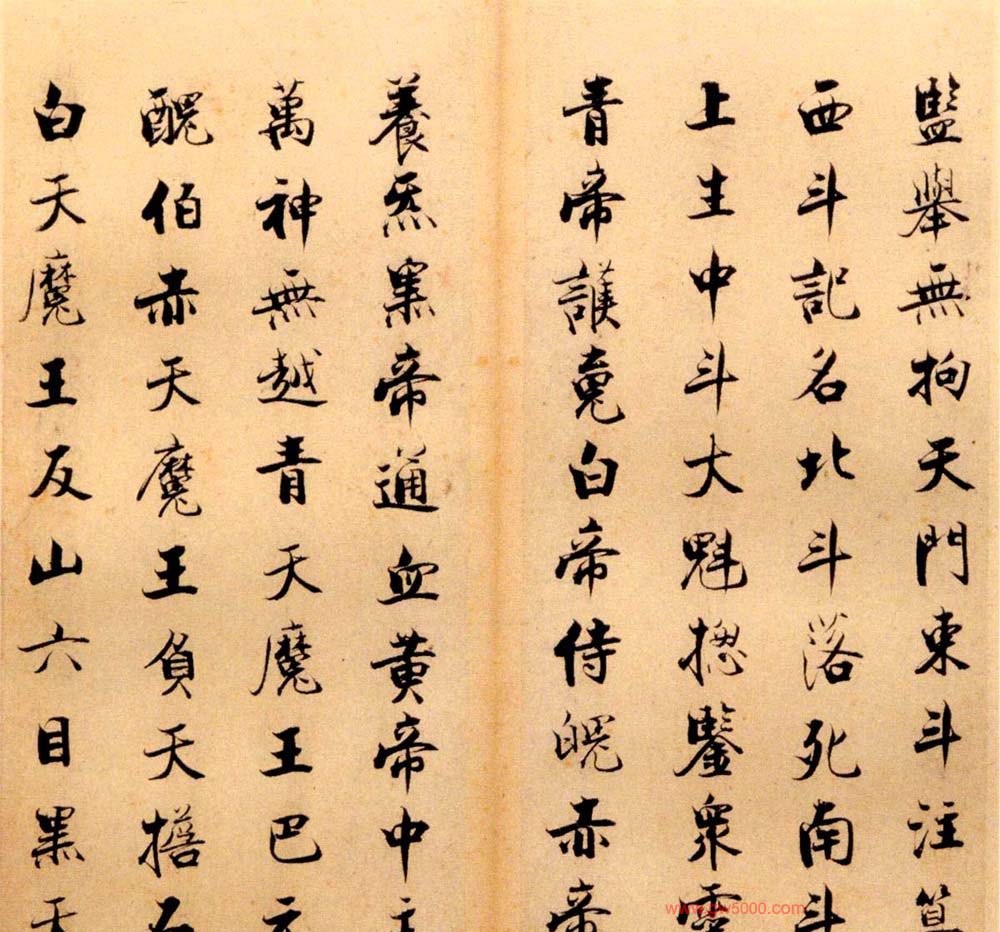 監舉無拘天門東斗注算
西斗記名北斗落死南斗
上生中斗大魁揔鑒衆靈
青帝護䰟白帝侍魄赤帝
養炁黑帝通血黃帝中主
萬神無越青天魔王巴元
醜伯赤天魔王負天擔石
白天魔王反山六目黑天